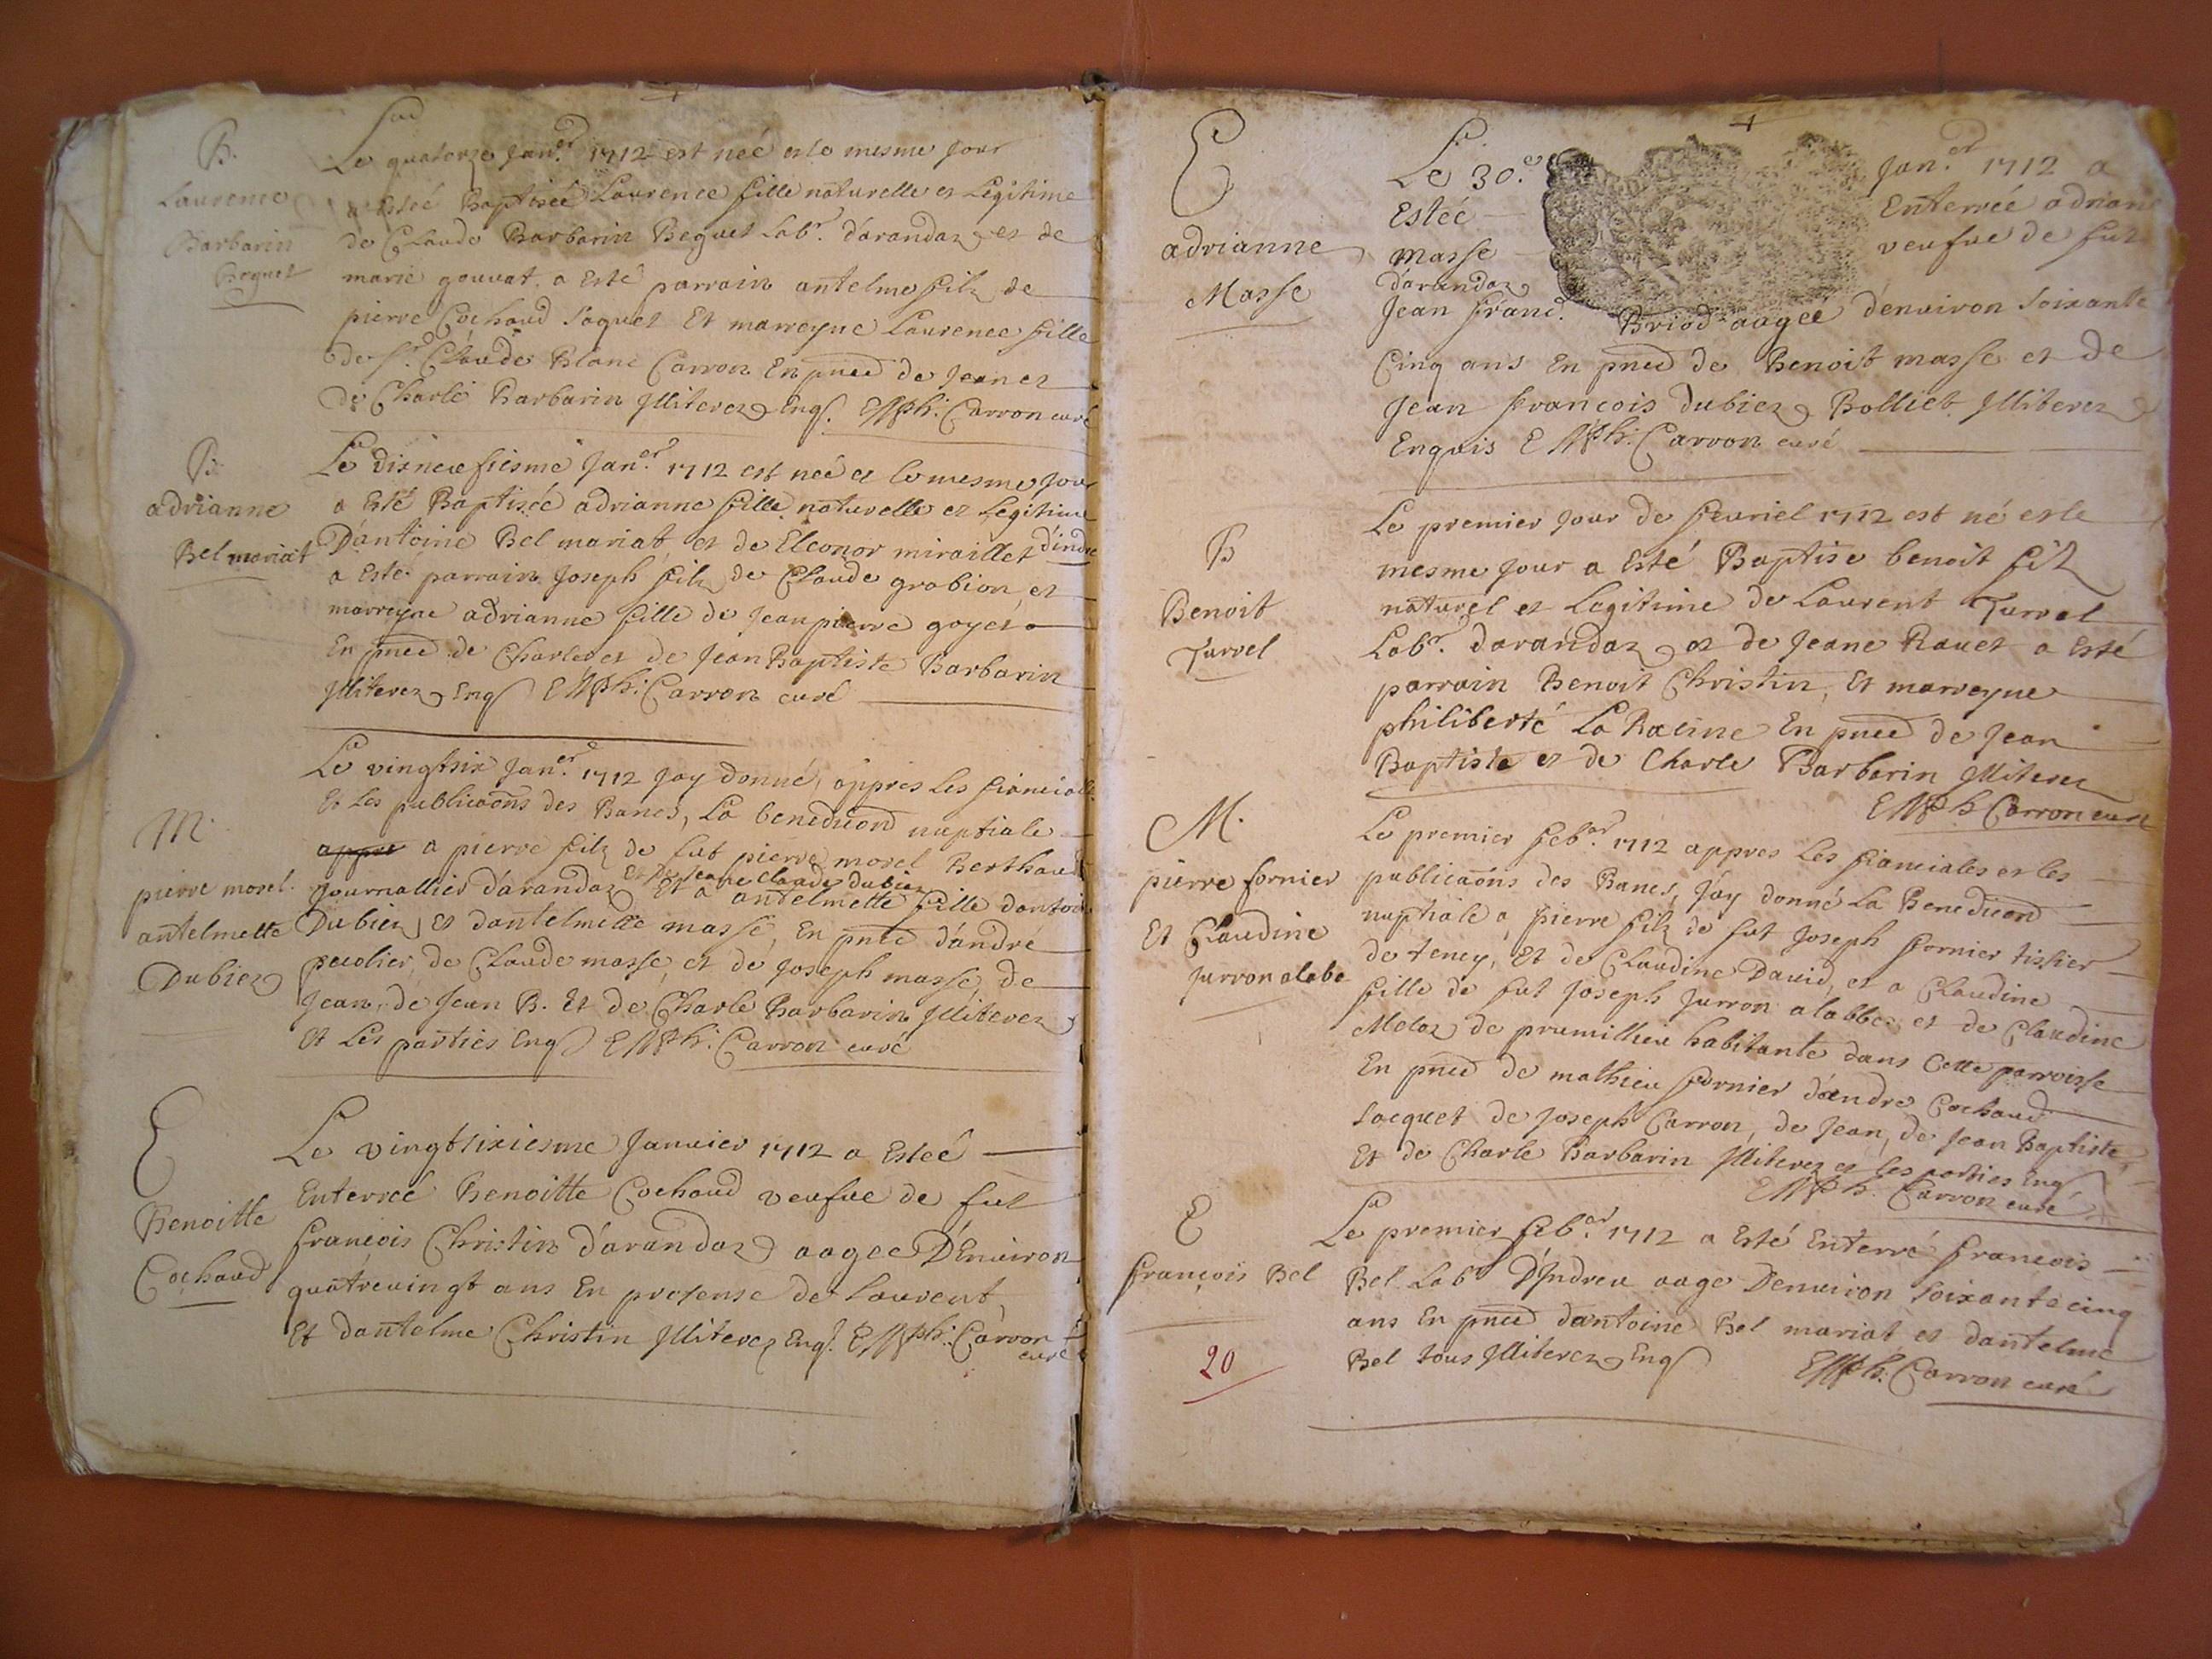 B.
Laurence
Barbarin
Beguet
Le quatorze Jan.er 1712 est neé et le mesme jour
a esteé Baptiseé Laurence fille naturelle et Legitime
de Claude Barbarin Beguet Lab.r d'arandaz et de
marie gouvat. a esté parrain antelme filz de
pierre Cochaud Jaquet Et marreyne Laurence fille
de S.r Claude Blanc Carron En pnce de Jean et
de Charle Barbarin Jlliterez Enq. Carron curé
B.
adrianne
Bel mariat
Le disneufiesme Jan.er 1712 est neé et le mesme jour
a Esté Baptiseé adrianne fille naturelle et Legitime
D'antoine Bel mariat et de Eleonor miraillet d'indre
a esté parrain Joseph filz de Claude grobion, et
marreyne adrianne fille de Jean pierre goyet
En pnce de Charle et de Jean Baptiste Barbarin
Jlliterez Enq Carron curé
M.
pierre morel.
antelmette
Dubiez
Le vingtsix Jan.er 1712 Jay donné, appres les fianciall.
Et les publicaons des Bancs, La benediction nuptiale
appre a pierre filz de fut pierre morel Berthaud
et de Jeane Claude dubiez
Journallier d'arandaz Et a antelmette fille dantoi
Dubiez et dantelmette masse, En pnce d'andré
peuolier, de Claude masse, et de Joseph masse, de
Jean, de Jean B. Et de Charle Barbarin Jlliterez
Et Les parties Enq Carron curé
E
Benoitte
Cochaud
Le vingtsixiesme Januier 1712 a Esteé
Enterreé Benoitte Cochaud veufue de fut
francois Christin d'arandaz aageé D'Enuiron
quatreuingt ans En presense de Laurent,
Et dantelme Christin Jlliterez Enq. Carron
curé
E
adrianne
Masse
Le 30.e Jan.er 1712 a
Esteé Enterreé adriane
masse veufue de fut
d'arandaz
Jean franc. Briod aageé d'enuiron soixante
Cinq ans En pnce de Benoit masse et de
Jean francois dubiez Bolliet Jlliterez
Enquis Carron curé
B
Benoit
Jurrel
Le premier jour de feuriel 1712 est né et le
mesme jour a esté Baptise benoit filz
naturel et Legitime de Laurent Jurrel
Lab.r darandaz et de Jeane Rauet a esté
parrain Benoit Christin, Et marreyne
philiberté La Racine En pnce de Jean
Baptiste et de Charle Barbarin Jlliterez
Carron curé
M.
pierre fornier
Et Claudine
Jurron alabe
Le premier feb.er 1712 appres Les fianciales et les
publicaons des Bancs, J'ay donné La Benediction
nuptiale a pierre filz de fut Joseph fornier tissier
de teney, Et de Claudine Dauid, et a Claudine
fille de fut Joseph Jurron alabbe et de Claudine
Molaz de prumillieu habitante dans Cette parroisse
En pnce de mathieu fornier d'andre Cochaud
Jacquet de Joseph Carron, de Jean, de Jean Baptiste,
Et de Charle Barbarin Jlliterez et les parties Enq
Carron curé
E
françois Bel
20
Le premier feb.er 1712 a Esté Enterré francois
Bel Lab.r D'Jndrieu aage Denuiron soixantecinq
ans En pnce dantoine Bel mariat et dantelme
Bel tous Jlliterez Enq
Carron curé